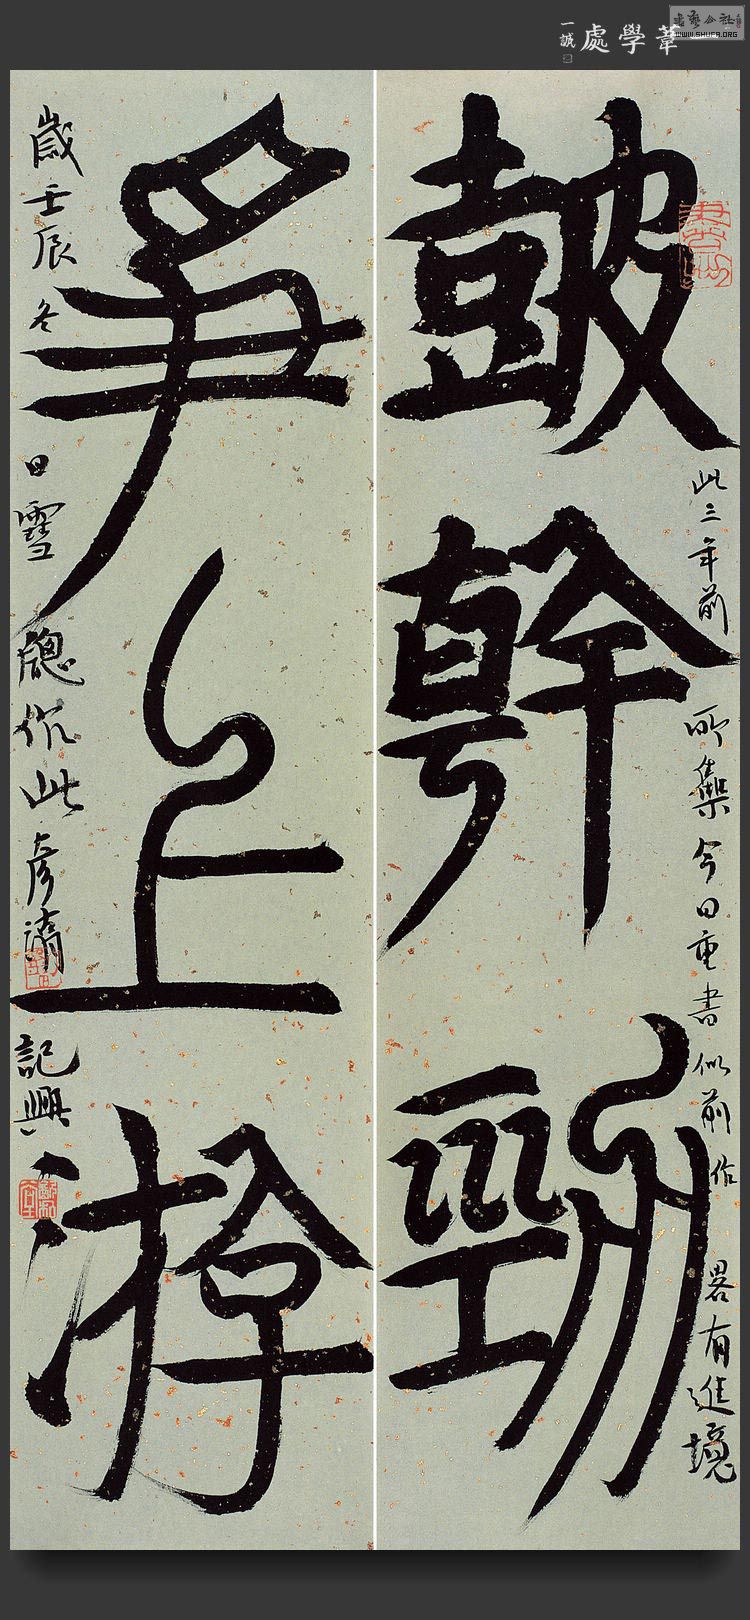 一葦學處
一誠
書藝公社
WWW.SHUFA.ORG
鼓幹勁
此三年前所集今日重書似前作畧有進境
爭上游
歲壬辰冬日雪牕作此彥濤記興